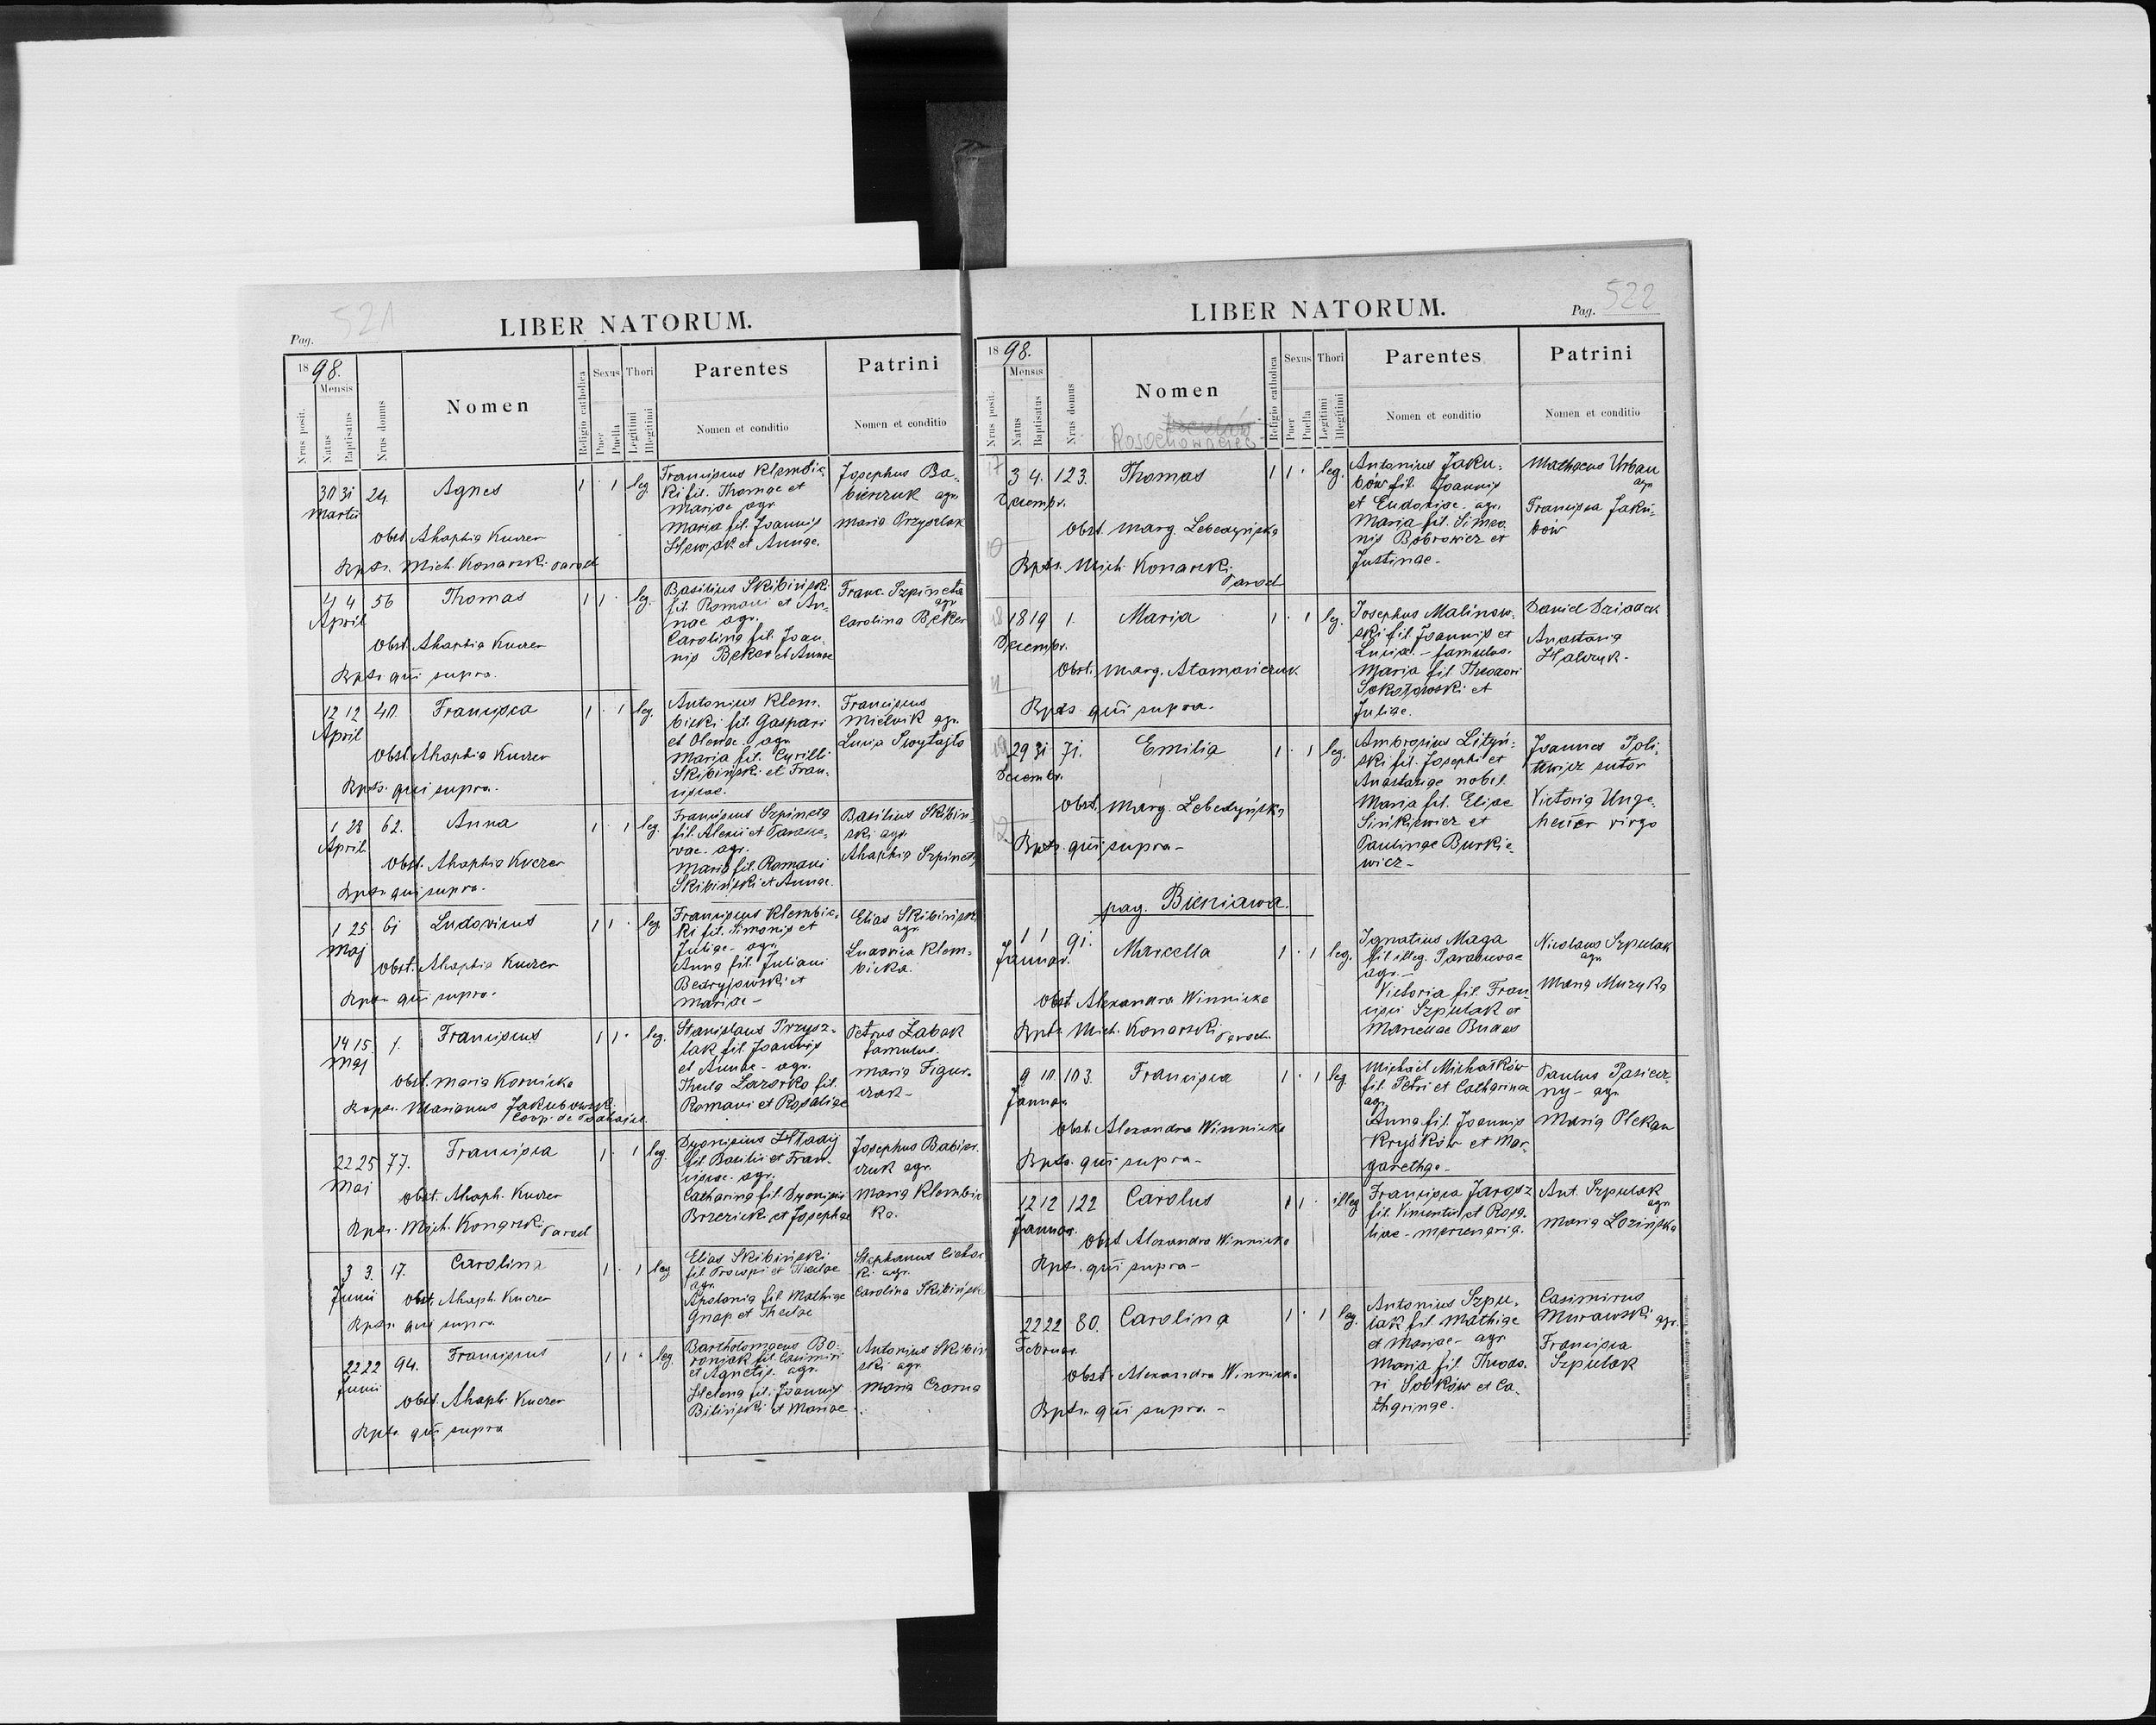 521
Pag.
LIBER NATORUM.
1898.
Mensis
Nrus posit.
Natus
Baptisatus
Nrus domus
Nomen
Religio catholica
Sexus
Puer
Puella
Thori
Legitimi
Illegitimi
Parentes
Nomen et conditio
Patrini
Nomen et conditio
30 31 24. Agnes 1 · 1 leg.
Martii
Obst. Ahaphia Kuczer
Bpts. Mich. Konarski paroch
Franciscus Klembic-
ki fil. Thomae et
Mariae agr.
Maria fil. Joannis
et Annae.
Josephus Ba-
bienczuk agr.
Maria Przyszlak
4 4 56 Thomas 1 1 · leg.
April
Obst. Ahaphia Kuczer
Bpts. qui supra.
Basilius Skibiński
fil. Romani et An-
nae agr.
Carolina fil. Joan-
nis Beker et Annae
Franc. Szpineta
agr
Carolina Beker
12 12 40. Francisca 1 · 1 leg.
April
Obst. Ahaphia Kuczer
Bpts. qui supra.
Antonius Klem-
bicki fil. Gaspari
et Olenae agr.
Maria fil. Cyrilli
Skibiński et Fran-
ciscae.
Franciscus
Mielnik agr.
Lucia
1 28 62. Anna 1 · 1 leg.
April
Obst. Ahaphia Kuczer
Bpts. qui supra.
Franciscus Szpineta
fil. Alexii et Parasce-
vae. agr.
Maria fil. Romani
Skibiński et Annae.
Basilius Skibiń-
ski agr.
Ahaphia Szpineta
1 25 61 Ludovicus 1 1 · leg
Maj
Obst. Ahaphia Kuczer
Bpts. qui supra.
Franciscus Klembic-
ki fil. Simonis et
Juliae. agr.
Anna fil. Juliani
et
Mariae -
Elias Skibiński
agr.
Ludovica Klem-
bicka.
14 15. 1. Franciscus 1 1 · leg.
Maj
Obst. Maria Kornicka
Bpts. Marianus Jakubowski
Coop. de
Stanislaus Przysz-
lak fil. Joannis
et Annae - agr.
Thecla Lazorko fil.
Romani et Rosaliae
Petrus Żabak
famulus.
Maria Figur-
czak -
22 25 77. Francisca 1 · 1 leg.
Maj
Obst. Ahaph. Kuczer
Bpts. Mich. Konarski paroch
Dyonisius Hładij
fil. Basilii et Fran-
ciscae. agr.
Catharina fil. Dyonisii
Brzezicki et Josephae
Josephus Babien-
czuk agr.
Maria Klembic-
ka.
3 3. 17. Carolina 1 · 1 leg
Junii
Obst. Ahaph. Kuczer
Bpts. qui supra
Elias Skibiński
fil. Procopii et Theclae
agr.
Apolonia fil. Mathiae
Gnap et Theclae
Stephanus
ki agr.
Carolina Skibińska
22 22 94. Franciscus 1 1 · leg.
Junii
Obst. Ahaph. Kuczer
Bpts. qui supra
Bartholomaeus Bo-
roniak fil. Casimiri
et Agnetis. agr.
Helena fil. Joannis
Biliński et Mariae
Antonius Skibiń-
ski agr.
Maria Czorna
LIBER NATORUM.
Pag. 522
1898.
Mensis
Nrus posit.
Natus
Baptisatus
Nrus domus
Nomen
Rosochowaciec
Religio catholica
Sexus
Puer
Puella
Thori
Legitimi
Illegitimi
Parentes
Nomen et conditio
Patrini
Nomen et conditio
17 3 4. 123. Thomas 1 1 · leg.
Decembr.
Obst. Marg. Lebedyńska
10
Bpts. Mich. Konarski
Paroch
Antonius Jaku-
bów fil. Joannis
et Eudoxiae. agr.
Maria fil. Simeo-
nis Bobrowicz et
Justinae.
Mathaeus Urban
agr
Francisca Jaku-
bów
18 18 19 1. Maria 1 · 1 leg.
Decembr.
Obst. Marg. Atamańczuk
11
Bpts qui supra.
Josephus Malinow-
ski fil. Joannis et
Luciae - famulus.
Maria fil. Theodori
Sokołowski et
Juliae.
Daniel Dziadek
Anastasia
19 29 31 71. Emilia 1 · 1 leg.
Decembr.
Obst. Marg. Lebedyńska
12
Bpts. qui supra -
Ambrosius Lityń-
ski fil. Josephi et
Anastasiae nobil.
Maria fil. Eliae
Sińkiewicz et
Paulinae Burkie-
wicz -
Joannes Poli-
sutor
Victoria Unge-
heuer virgo
pag. Bieniawa.
1 1 91. Marcella 1 · 1 leg.
Januar.
Obst. Alexandra Winnicka
Bpts. Mich. Konarski
Paroch.
Ignatius Maga
fil. illeg. Parascevae
agr. -
Victoria fil. Fran-
cisci Szpulak et
Marcellae Budas
Nicolaus Szpulak
agr
Maria Muzyka
9 10. 103. Francisca 1 · 1 leg.
Januar
Obst. Alexandra Winnicka
Bpts. qui supra -
Michael Michałków
fil. Petri et Catharinae
agr.
Anna fil. Joannis
Kryśków et Mar-
garethae -
Paulus Pasiecz-
ny - agr
Maria Plekan
12 12 122 Carolus 1 1 · illeg.
Januar.
Obst. Alexandra Winnicka
Bpts. qui supra -
Francisca Jarosz
fil. Vincentii et Rosa-
liae - mercenaria.
Ant. Szpulak
agr
Maria Łozińska
22 22 80. Carolina 1 · 1 leg.
Februar.
Obst. Alexandra Winnicka
Bpts. qui supra -
Antonius Szpu-
lak fil. Mathiae
et Mariae - agr
Maria fil. Theodo-
ri Sobków et Ca-
tharinae.
Casimirus
Murawski agr.
Francisca
Szpulak